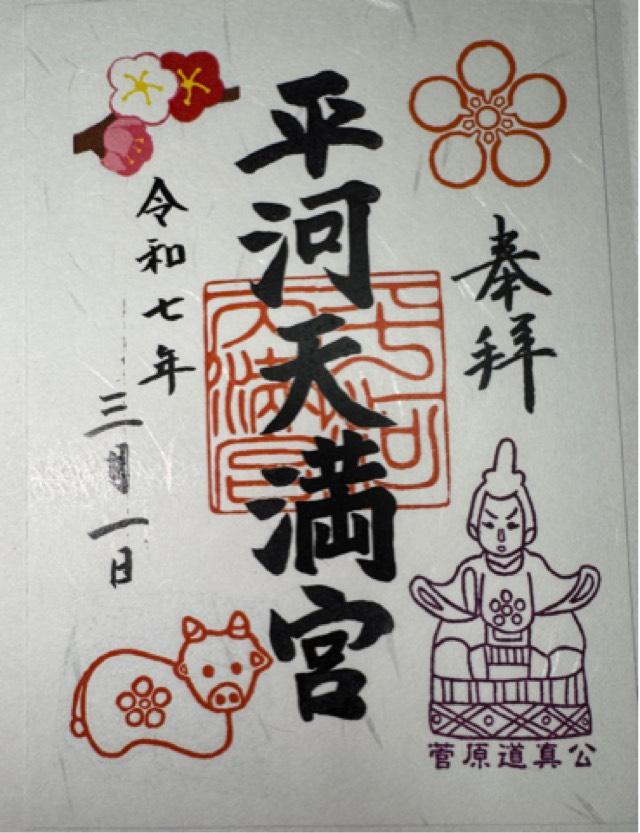 奉拝
平河天満宮
平河天満宮
令和七年
三月一日
菅原道真公